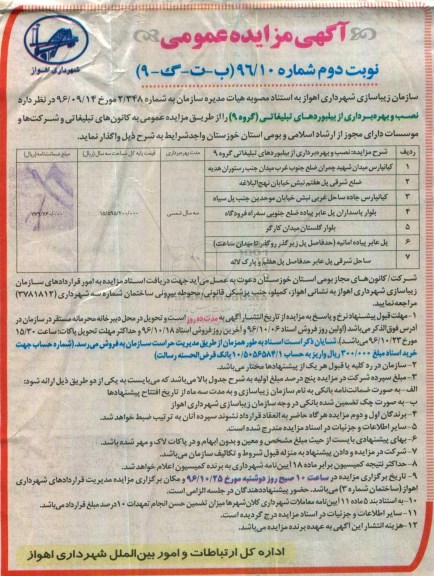 آگهی مزایده عمومی
نوبت دوم شماره ۹۶/۱۰ (ب-ت-گ-۹)
شهرداری اهواز
سازمان زیباسازی شهرداری اهواز به استناد مصوبه هیات مدیره سازمان به شماره ۲/۳۴۸ مورخ ۹۶/۰۹/۱۴ در نظر دارد
نصب و بهره‌برداری از بیلبوردهای تبلیغاتی (گروه ۹) را از طریق مزایده عمومی به کانون‌های تبلیغاتی و شرکت‌ها و
موسسات دارای مجوز از ارشاد اسلامی و بومی استان خوزستان واجدشرایط به شرح ذیل واگذار نماید.
ردیف شرح مزایده: نصب و بهره‌برداری از بیلبوردهای تبلیغاتی گروه ۹ مدت بهره‌برداری قیمت پایه کل ساعت سه سال (ریال) مبلغ ضمانتنامه (ریال)
۱ کیانپارس میدان شهید چمران ضلع جنوب غرب میدان جنب رستوران هدیه
۲ ضلع شرقی پل هفتم نبش خیابان نهج‌البلاغه
۳ کیانپارس جاده ساحل غربی نبش خیابان موحدین جنب پل سیاه
۴ بلوار پاسداران پل عابر پیاده ضلع جنوبی سه‌راه فرودگاه سه سال شمسی
۵ بلوار گلستان میدان کارگر
۶ پل عابر پیاده امانیه (حدفاصل پل زیرگذر روگذر تا میدان ساعت)
۷ ساحل شرقی پل عابر حدفاصل پل هفتم و پارک لاله
شرکت/کانون‌های مجاز بومی استان خوزستان دعوت به عمل می‌آید جهت دریافت اسناد مزایده به امور قراردادهای سازمان
زیباسازی شهرداری اهواز به نشانی اهواز، کمپلو، جنب پزشکی قانونی، محوطه بیرونی ساختمان شماره سه شهرداری (۳۷۸۱۸۱۲)
مراجعه نمایید.
۱- مهلت قبول پیشنهاد نرخ و پاسخ به مزایده از تاریخ انتشار آگهی به مدت ده روز است و تحویل در محل دبیرخانه محرمانه مستقر در سازمان در
آدرس فوق‌الذکر می‌باشد (اولین روز فروش اسناد ۹۶/۱۰/۰۶ و آخرین روز فروش اسناد ۹۶/۱۰/۱۸ و حداکثر مهلت تحویل پاکات: ساعت ۱۵/۳۰
مورخ ۹۶/۱۰/۲۳ می‌باشد). شایان ذکر است اسناد به طور همزمان از طریق مدیریت حراست سازمان به فروش می‌رسد. (شماره حساب جهت
خرید اسناد مبلغ ۳۰۰/۰۰۰ ریال واریز به حساب ۱۰/۵۰۵۶۵۸۴/۱ بانک قرض‌الحسنه رسالت)
۲- سازمان در رد کلیه یا قبول هر یک از پیشنهادها مختار می‌باشد.
۳- مبلغ سپرده شرکت در مزایده پنج در صد مبلغ اولیه به شرح جدول بالا می‌باشد که می‌بایست به یکی از دو طریق ذیل ارائه شود:
الف- به صورت ضمانت‌نامه بانکی به نام سازمان زیباسازی و به مدت سه ماه از تاریخ افتتاح پیشنهادها
ب- به صورت چک تضمین شده بانکی در وجه سازمان زیباسازی شهرداری اهواز
۴- برندگان اول و دوم مزایده هرگاه حاضر به انعقاد قرارداد نشوند سپرده آنان به ترتیب ضبط خواهد شد.
۵- سایر اطلاعات و جزئیات در اسناد مزایده مندرج شده است.
۶- بهای پیشنهادی بایست از حیث مبلغ مشخص و معین و بدون ابهام و در پاکات لاک و مهر شده باشد.
۷- شرکت در مزایده و دادن پیشنهاد به منزله قبول شروط و تکالیف سازمان می‌باشد.
۸- حداکثر نتیجه کمیسیون برابر ماده ۱۸ آیین‌نامه شهرداری به برنده کمیسیون اعلام خواهد شد.
۹- تاریخ برگزاری مزایده در ساعت ۱۰ صبح روز دوشنبه مورخ ۹۶/۱۰/۲۵ و مکان برگزاری مزایده مدیریت قراردادهای شهرداری
اهواز (ساختمان شماره ۳) می‌باشد. حضور پیشنهاددهندگان در جلسه الزامی است.
۱۰- به استناد بند ۵ ماده ۱۱ آیین‌نامه معاملات شهرداری کلان شهرها میزان تضمین حسن انجام تعهدات ۱۰ درصد مبلغ قرارداد می‌باشد.
۱۱- سایر اطلاعات و جزئیات در اسناد مزایده درج گردیده است.
۱۲- هزینه انتشار این آگهی به عهده برنده مزایده می‌باشد.
اداره کل ارتباطات و امور بین‌الملل شهرداری اهواز